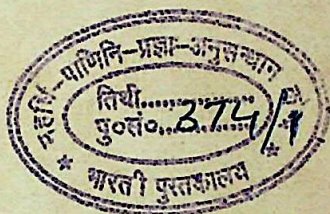 महर्षि-पाणिनि-प्रज्ञा-अनुसन्धान
तिथी..............
पु०सं०..374/1
* भारती पुस्तकालय *